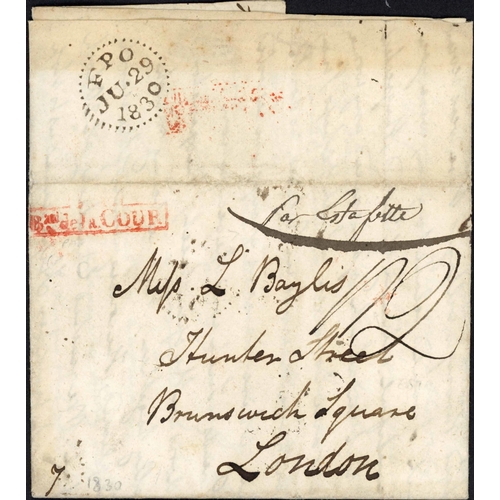 FPO
JU. 29
1830
Bau de la COUR
Par Estafette
Miss L Baylis
12
Hunter Street
Brunswick Square
London
7
1830